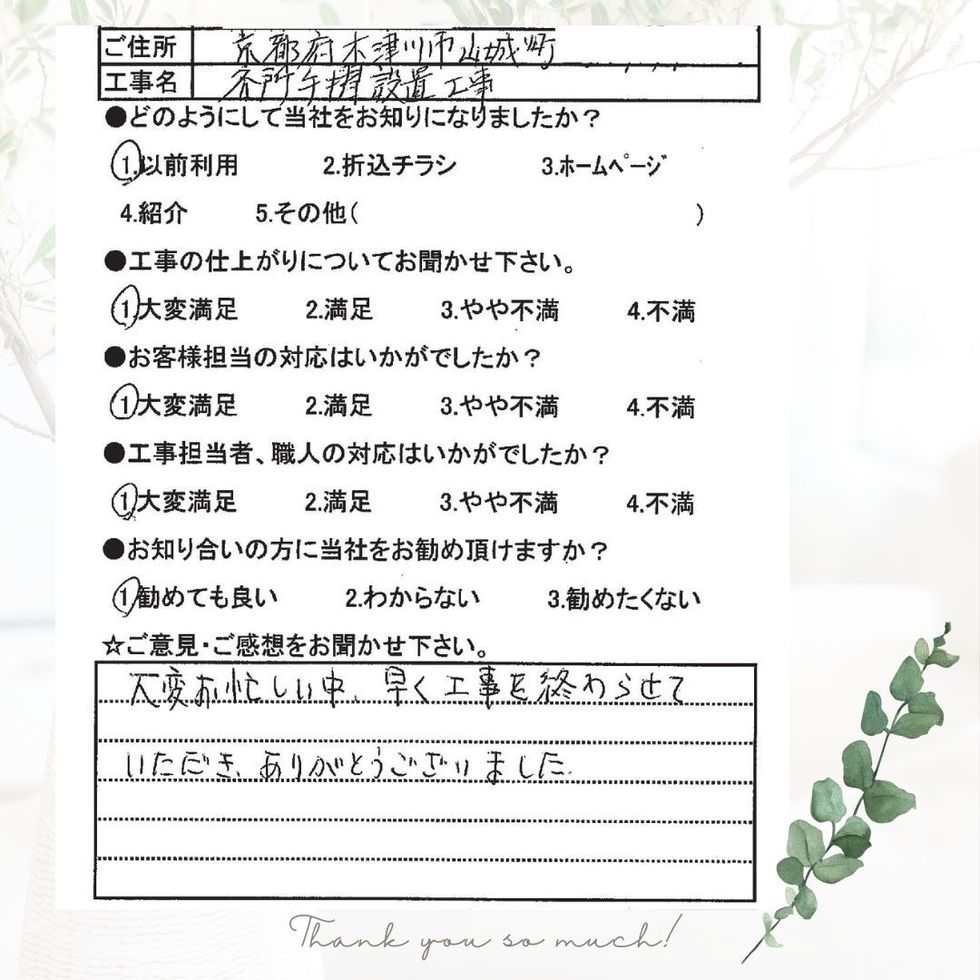 ご住所 京都府木津川市山城町
工事名 各所手摺設置工事
●どのようにして当社をお知りになりましたか?
1.以前利用 2.折込チラシ 3.ホームページ
4.紹介 5.その他( )
●工事の仕上がりについてお聞かせ下さい。
1.大変満足 2.満足 3.やや不満 4.不満
●お客様担当の対応はいかがでしたか?
1.大変満足 2.満足 3.やや不満 4.不満
●工事担当者、職人の対応はいかがでしたか?
1.大変満足 2.満足 3.やや不満 4.不満
●お知り合いの方に当社をお勧め頂けますか?
1.勧めても良い 2.わからない 3.勧めたくない
☆ご意見・ご感想をお聞かせ下さい。
大変お忙しい中、早く工事を終わらせて
いただき、ありがとうございました。
Thank you so much!